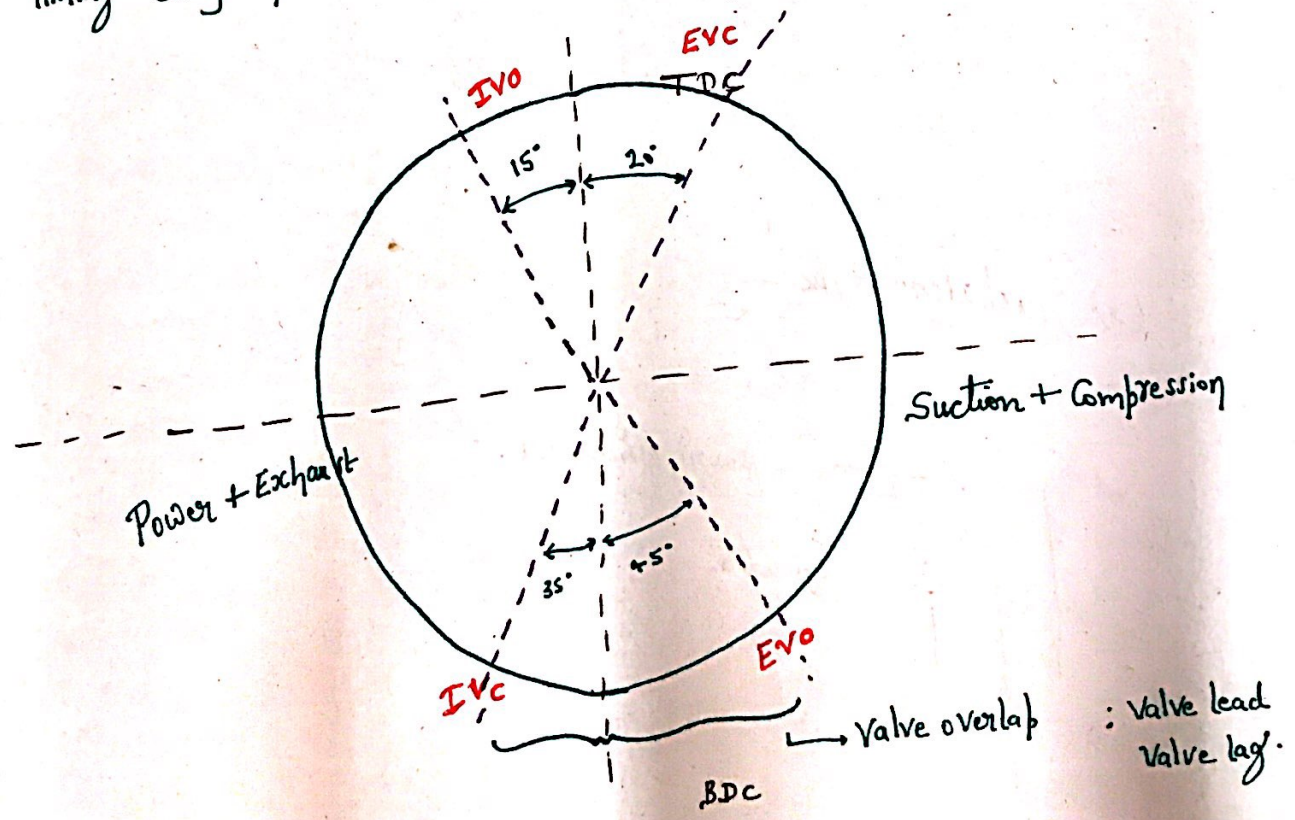 EVC
IVO
TDC
15°
20°
Suction + Compression
Power + Exhaust
35°
45°
EVO
IVC
Valve overlap : Valve lead
Valve lag.
BDC